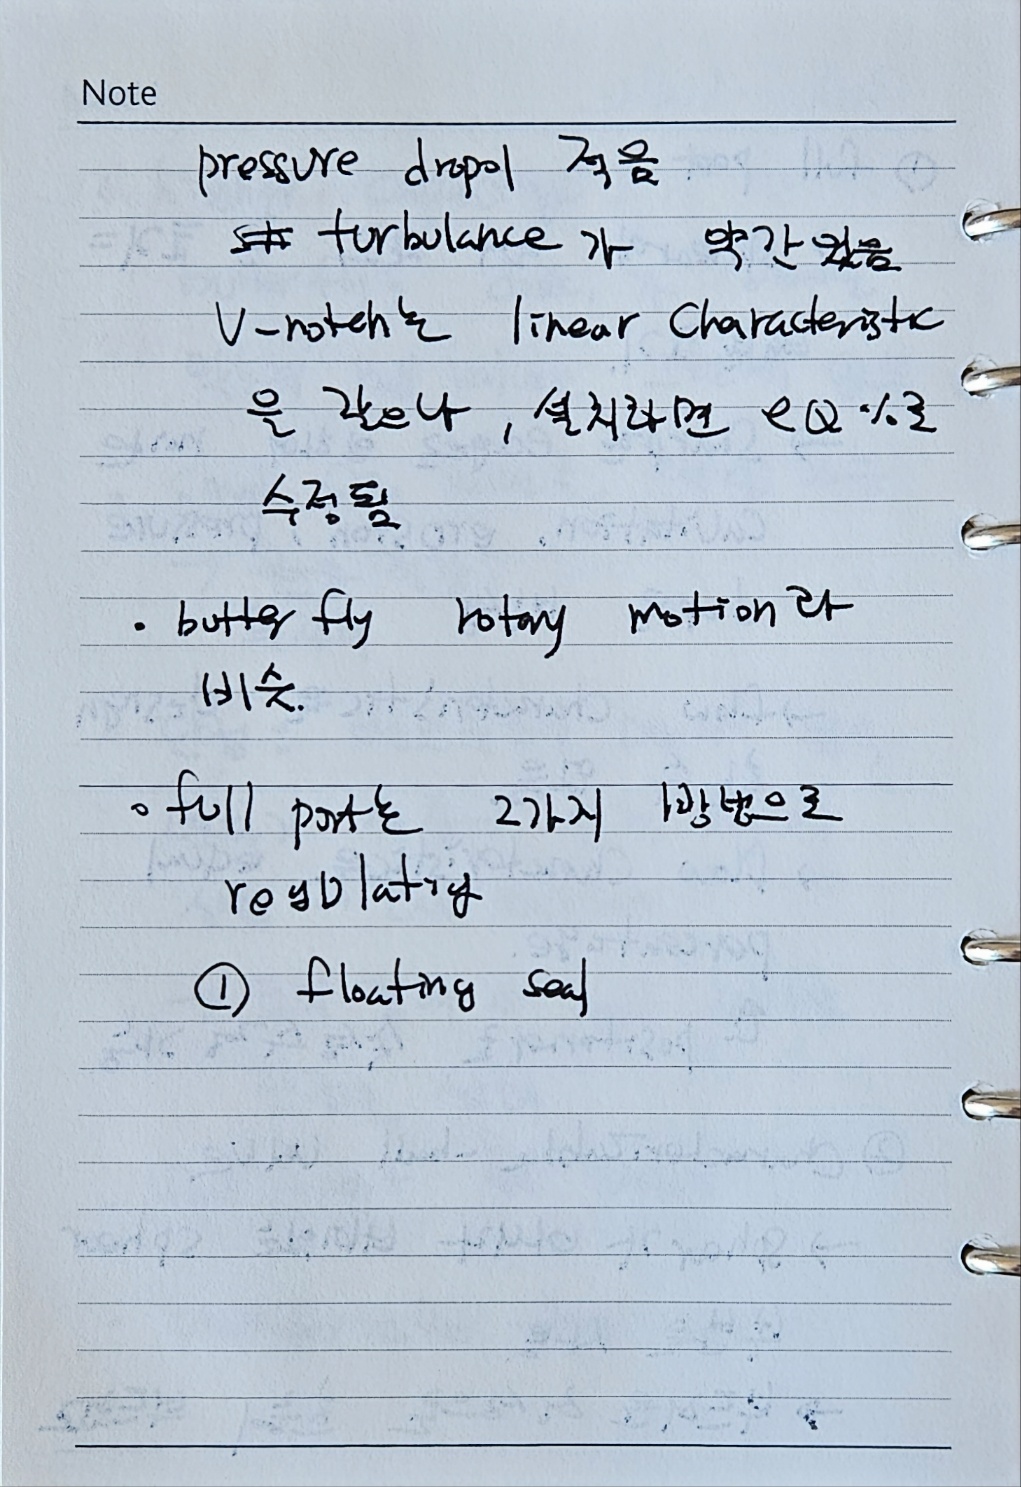 Note
pressure drop이 적음
turbulance가 약간 있음
V-notch는 linear Characteristic
을 갖으나, 설치하면 eQ%로
수정됨
· butterfly rotary motion과
비슷.
· full port는 2가지 방법으로
regulating
① floating seal